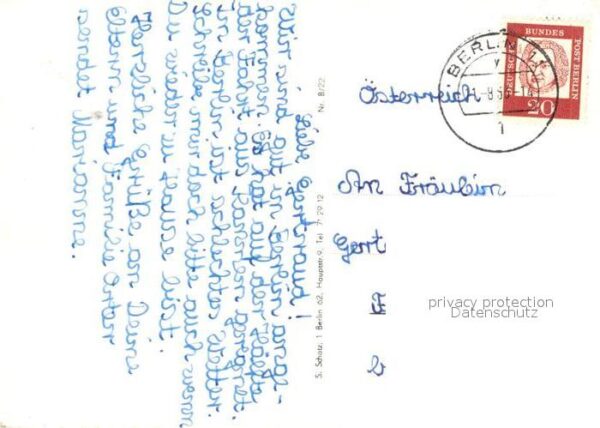 Liebe Gertraud!
Wir sind gut in Berlin ange-
kommen. Es hat auf der Hälfte
der Fahrt aus Kannen geregnet.
in Berlin ist schlechtes Wetter.
Schreibe mir doch bitte auch wenn
Du wieder zu Hause bist.
Herzliche Grüße an Deine
Eltern und Familie
sendet Marianne.
Nr. 8/22
S. Schatz, 1 Berlin 62, Hauptstr. 9, Tel. 71 29 12
BERLIN
1
DEUTSCHE
BUNDES
POST BERLIN
20
Österreich
An Fräulein
Gert
privacy protection
Datenschutz